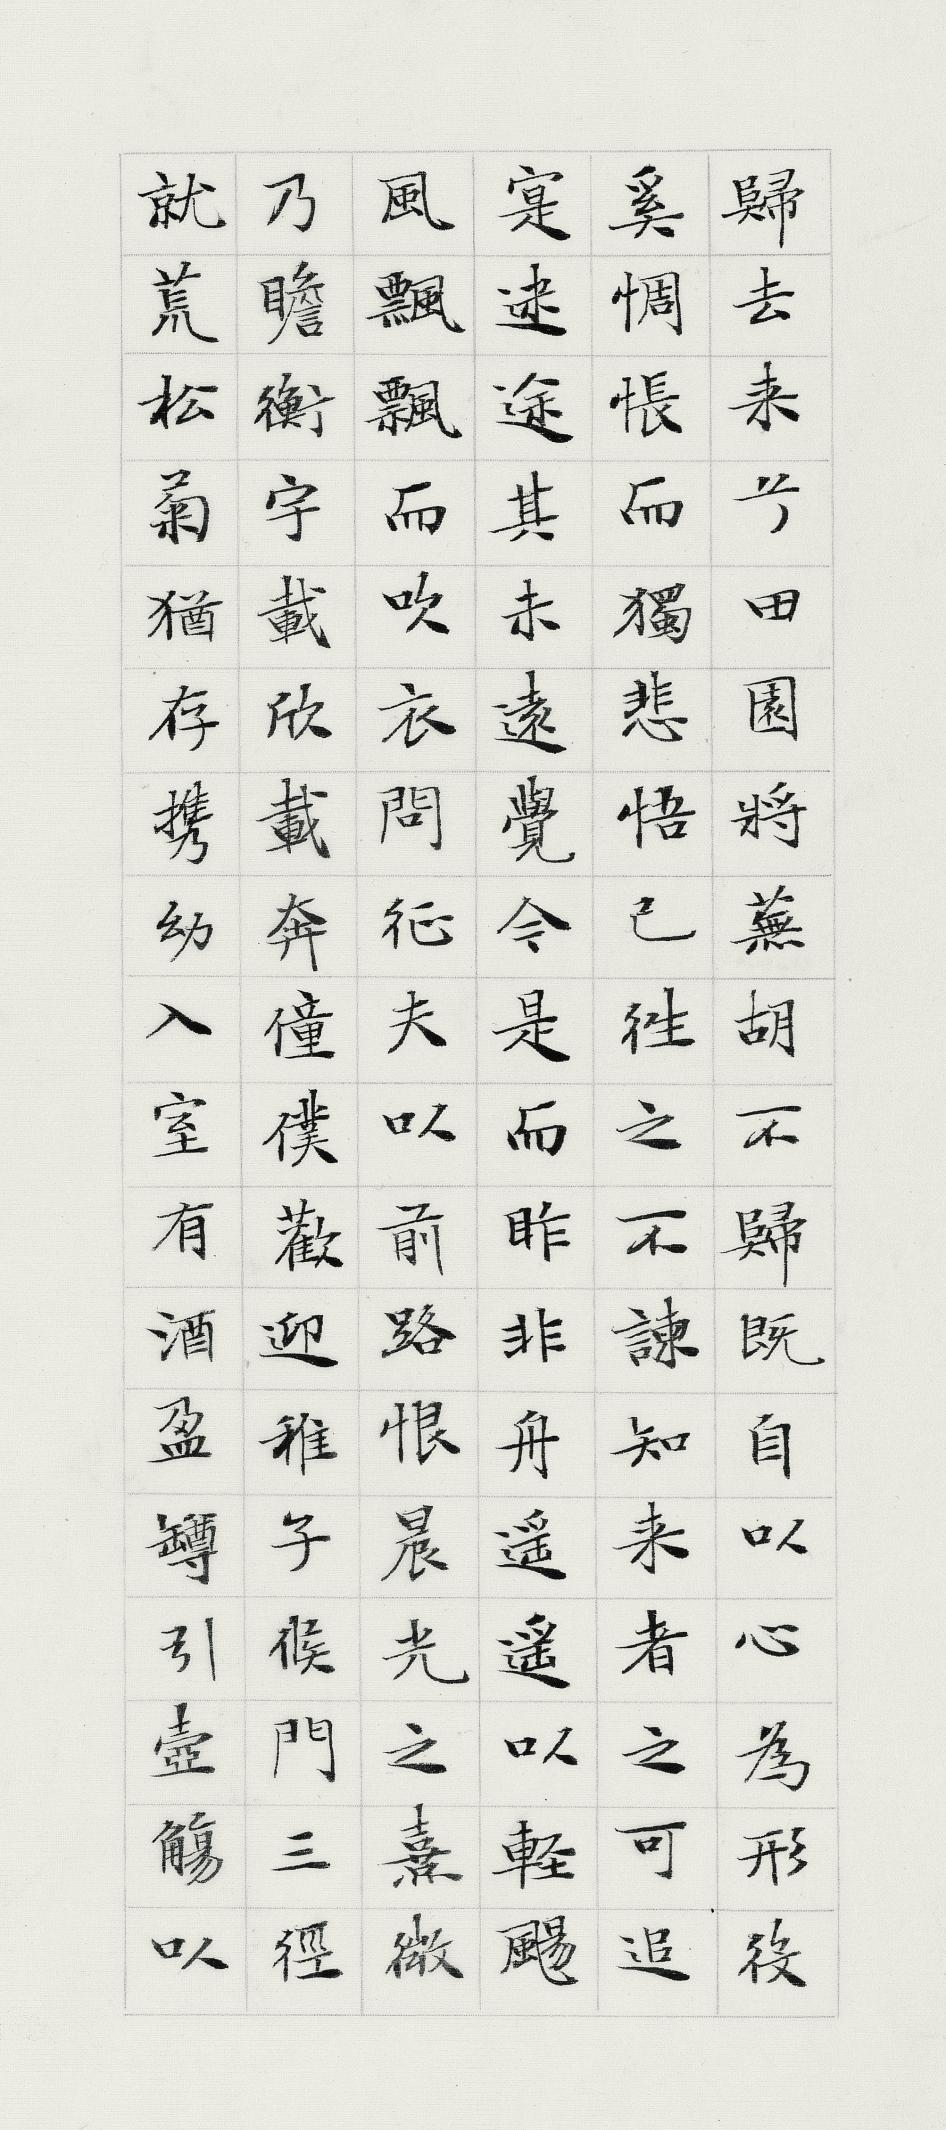 歸去来兮田園將蕪胡不歸既自以心為形役
奚惆悵而獨悲悟已往之不諫知来者之可追
寔迷途其未遠覺今是而昨非舟遥遥以軽颺
風飄飄而吹衣問征夫以前路恨晨光之熹微
乃瞻衡宇載欣載奔僮僕歡迎稚子候門三徑
就荒松菊猶存携幼入室有酒盈罇引壺觴以